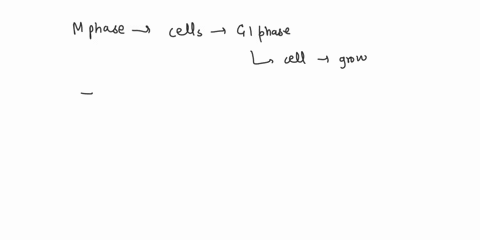 M phase → cells → G1 phase
↳ cell → grow
–